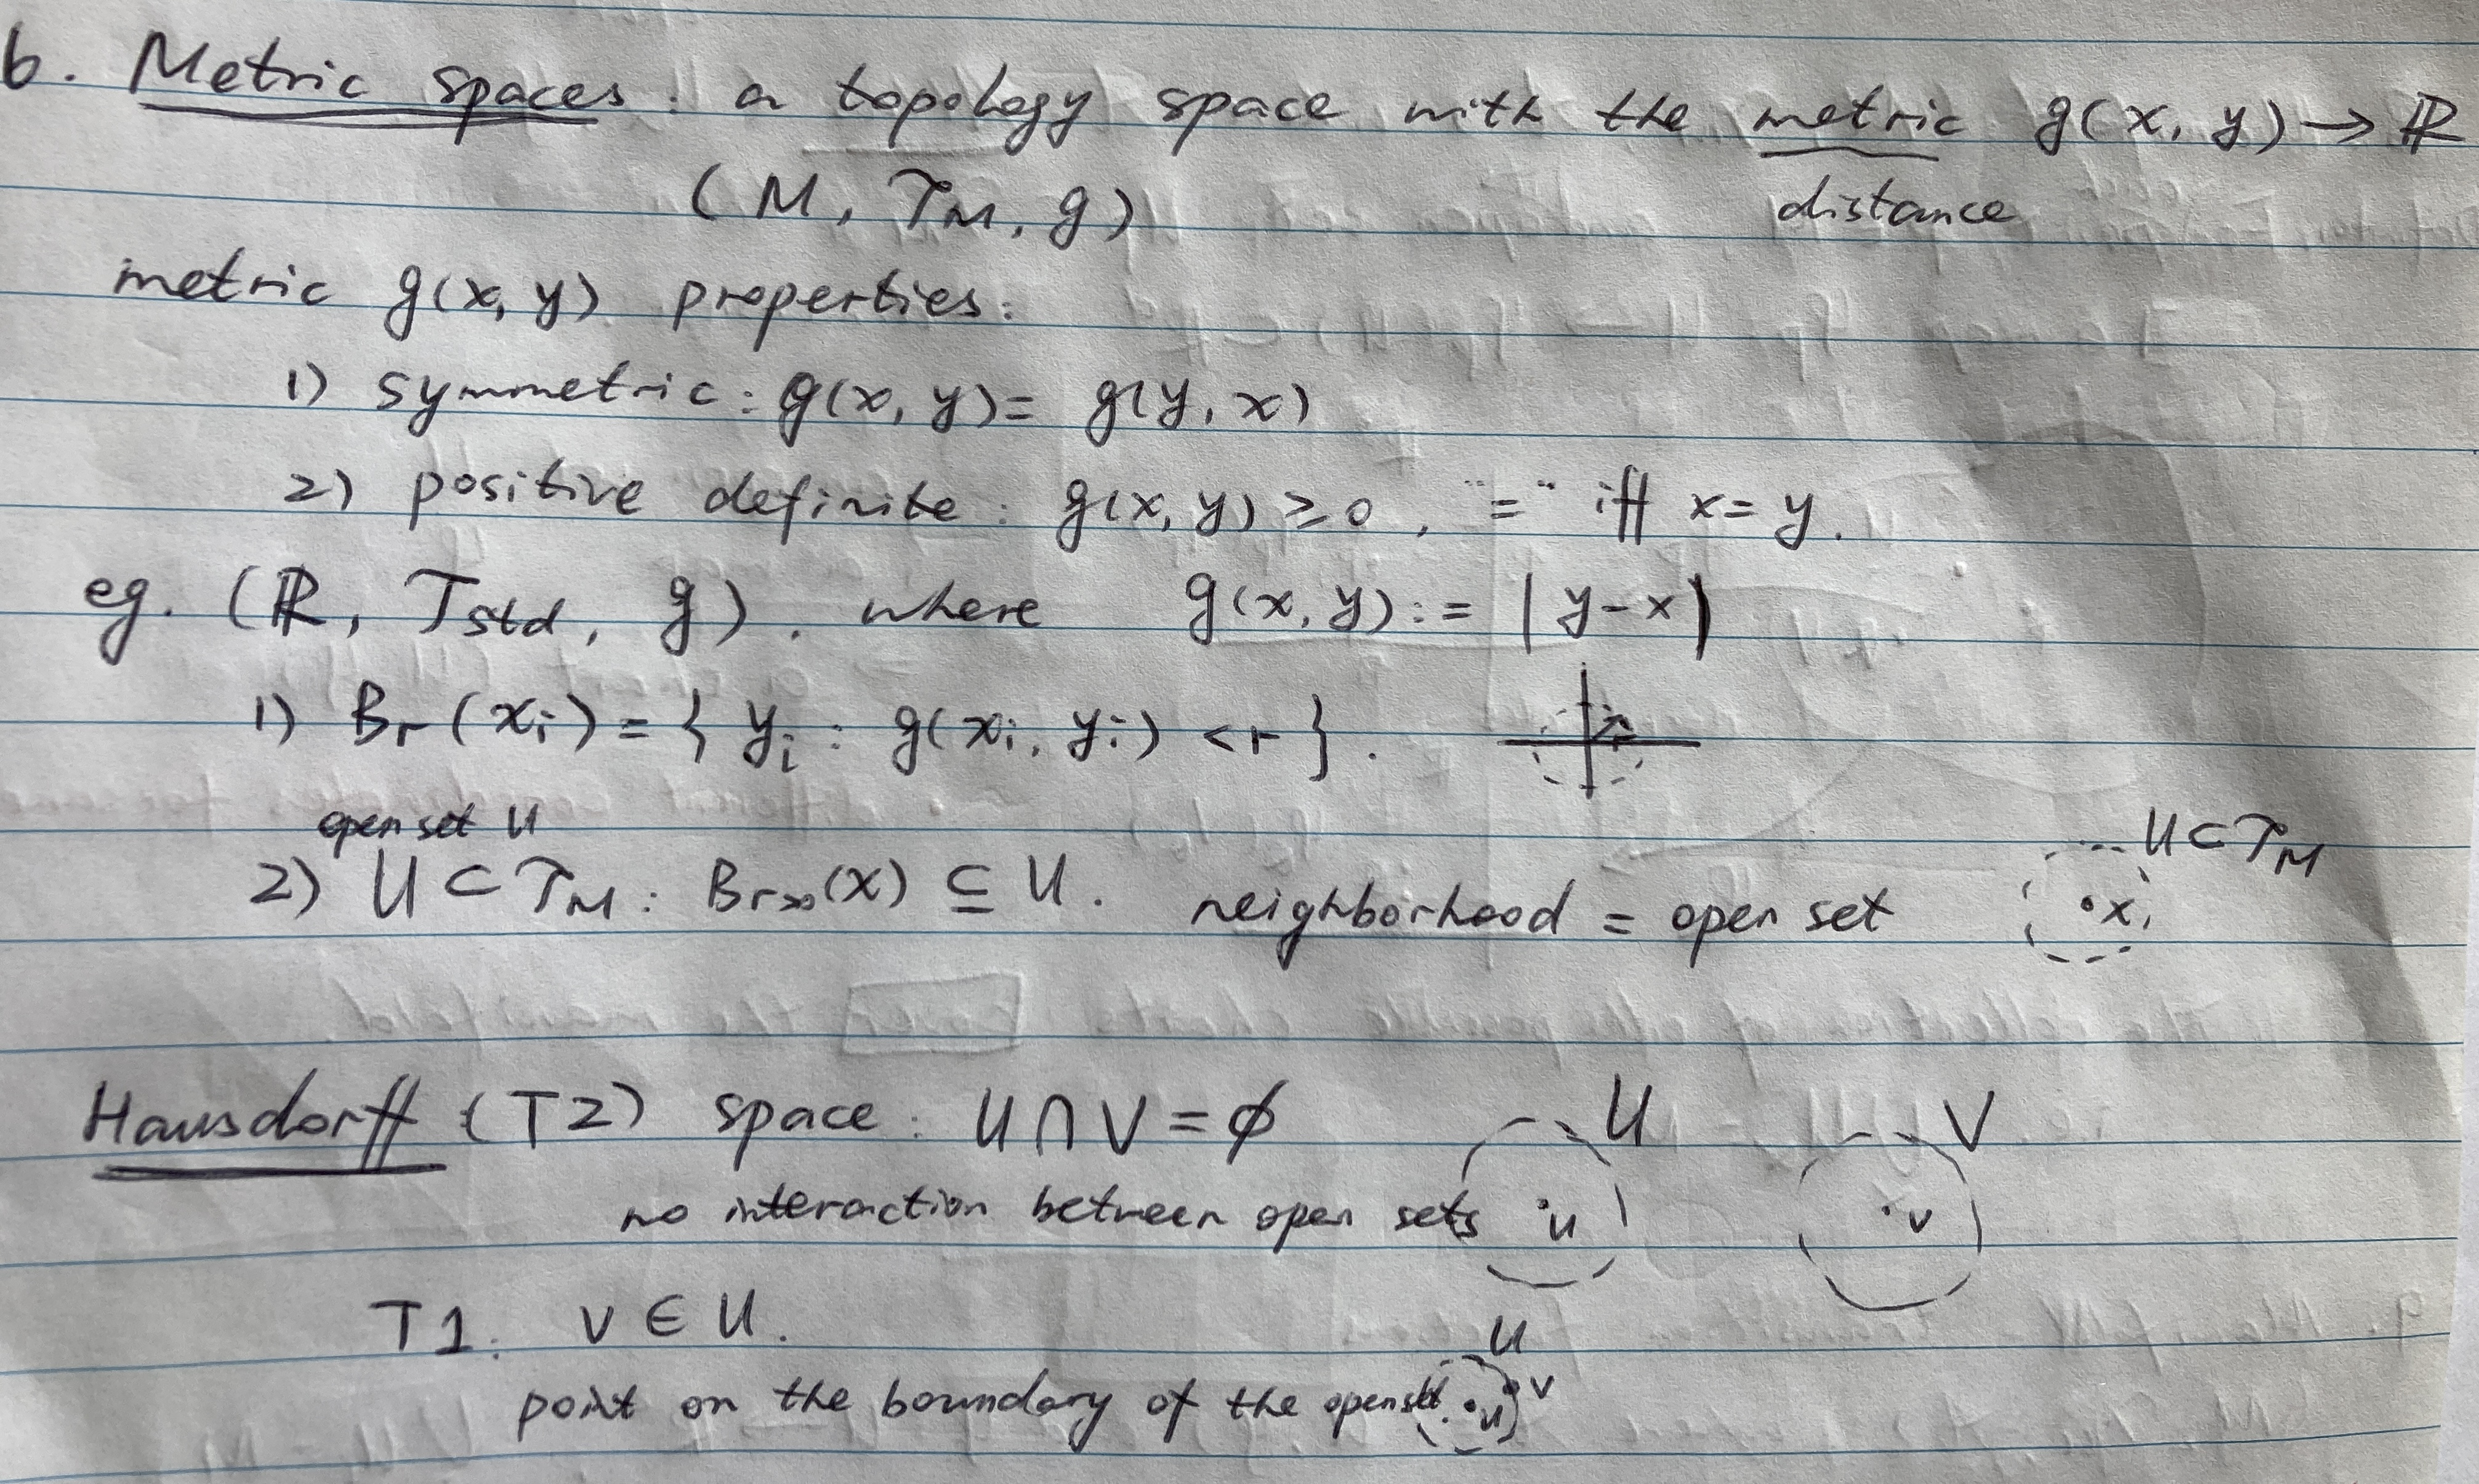 6. Metric spaces : a topology space with the metric g(x, y) → ℝ
(M, 𝒯_M, g) distance
metric g(x, y) properties:
1) symmetric: g(x, y) = g(y, x)
2) positive definite: g(x, y) ≥ 0, "=" iff x = y.
eg. (ℝ, T_std, g). where g(x, y) := |y - x|
1) B_r(x_i) = { y_i : g(x_i, y_i) < r }.
open set U
2) U ⊂ 𝒯_M : B_r>0(x) ⊆ U. neighborhood = open set
U ⊂ 𝒯_M
x
Hausdorff (T2) space: U ∩ V = ϕ
U V
no interaction between open sets
u v
T1: v ∈ U.
U
point on the boundary of the open set
u v